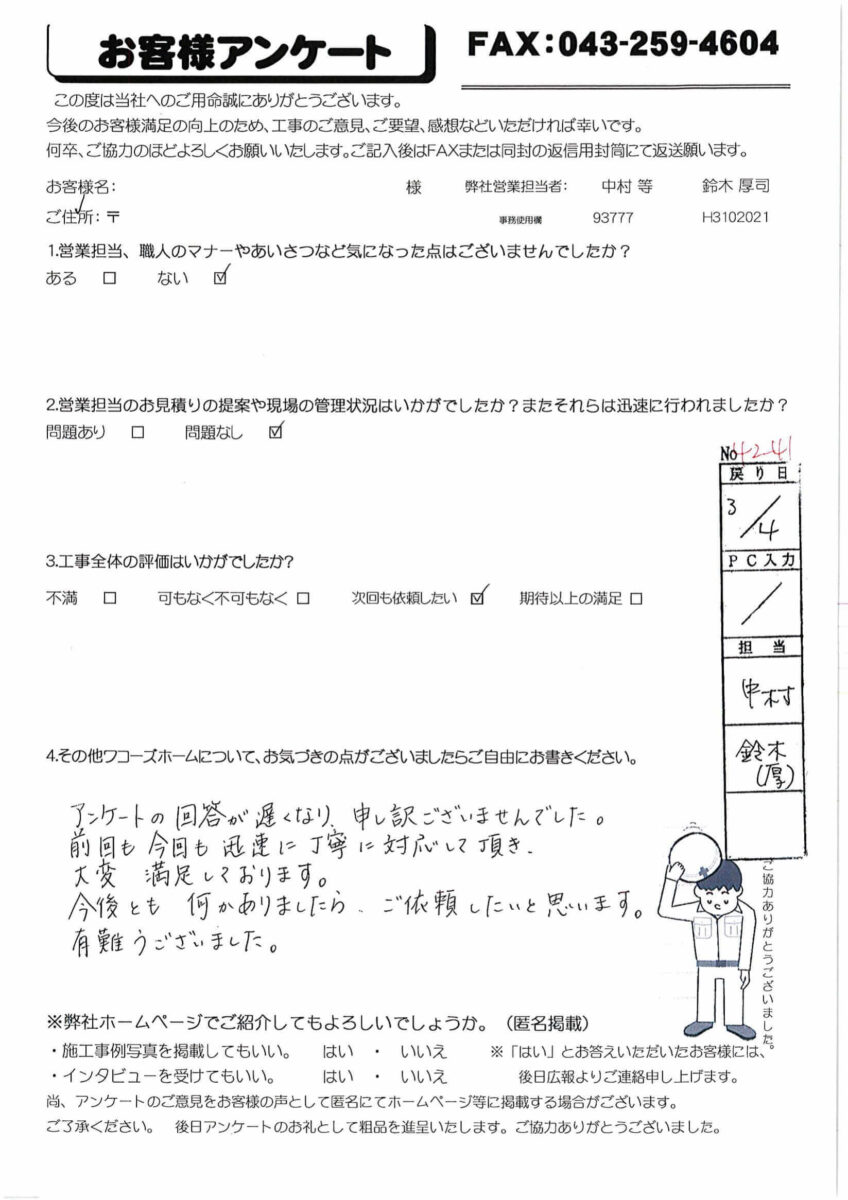 お客様アンケート
FAX:043-259-4604
この度は当社へのご用命誠にありがとうございます。
今後のお客様満足の向上のため、工事のご意見、ご要望、感想などいただければ幸いです。
何卒、ご協力のほどよろしくお願いいたします。ご記入後はFAXまたは同封の返信用封筒にて返送願います。
お客様名: 様 弊社営業担当者: 中村 等 鈴木 厚司
ご住所:〒 事務使用欄 93777 H3102021
1.営業担当、職人のマナーやあいさつなど気になった点はございませんでしたか?
ある □ ない ☑
2.営業担当のお見積りの提案や現場の管理状況はいかがでしたか?またそれらは迅速に行われましたか?
問題あり □ 問題なし ☑
No 42-41
戻り日
3/4
3.工事全体の評価はいかがでしたか?
PC入力
/
不満 □ 可もなく不可もなく □ 次回も依頼したい ☑ 期待以上の満足 □
担当
中村
鈴木
(厚)
4.その他ワコーズホームについて、お気づきの点がございましたらご自由にお書きください。
アンケートの回答が遅くなり、申し訳ございませんでした。
前回も今回も迅速に丁寧に対応して頂き、
大変 満足しております。
今後とも 何かありましたら、ご依頼したいと思います。
有難うございました。
ご協力ありがとうございました。
※弊社ホームページでご紹介してもよろしいでしょうか。(匿名掲載)
・施工事例写真を掲載してもいい。 はい ・ いいえ ※「はい」とお答えいただいたお客様には、
・インタビューを受けてもいい。 はい ・ いいえ 後日広報よりご連絡申し上げます。
尚、アンケートのご意見をお客様の声として匿名にてホームページ等に掲載する場合がございます。
ご了承ください。 後日アンケートのお礼として粗品を進呈いたします。ご協力ありがとうございました。